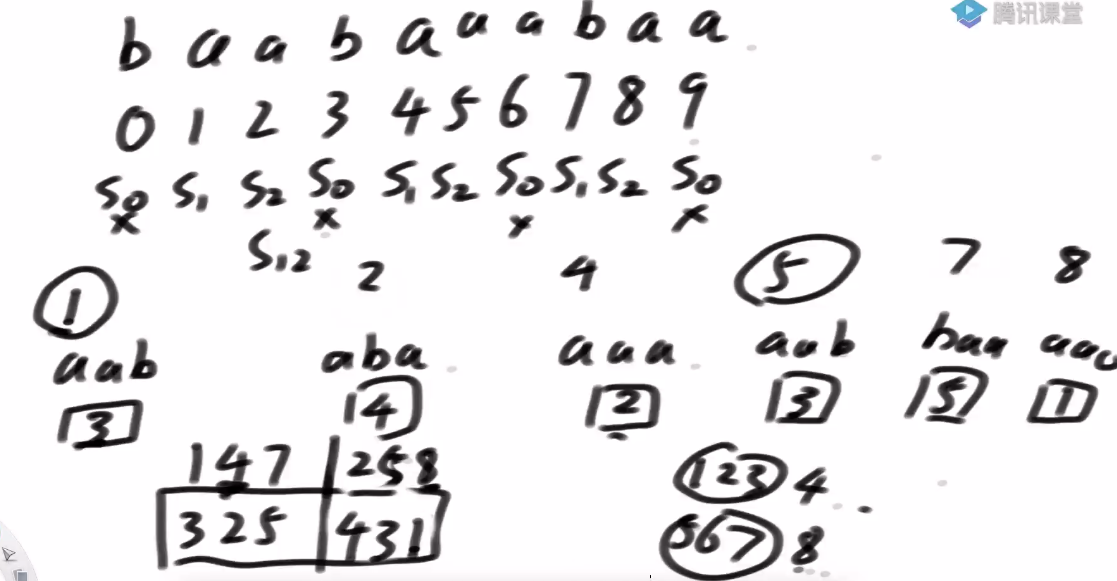 腾讯课堂
b a a b a a a b a a
0 1 2 3 4 5 6 7 8 9
S0 S1 S2 S0 S1 S2 S0 S1 S2 S0
x x x x
S12
1 2 4 5 7 8
aab aba aaa aab baa aa
3 4 2 3 5 1
147 258
325 431
123 4
567 8